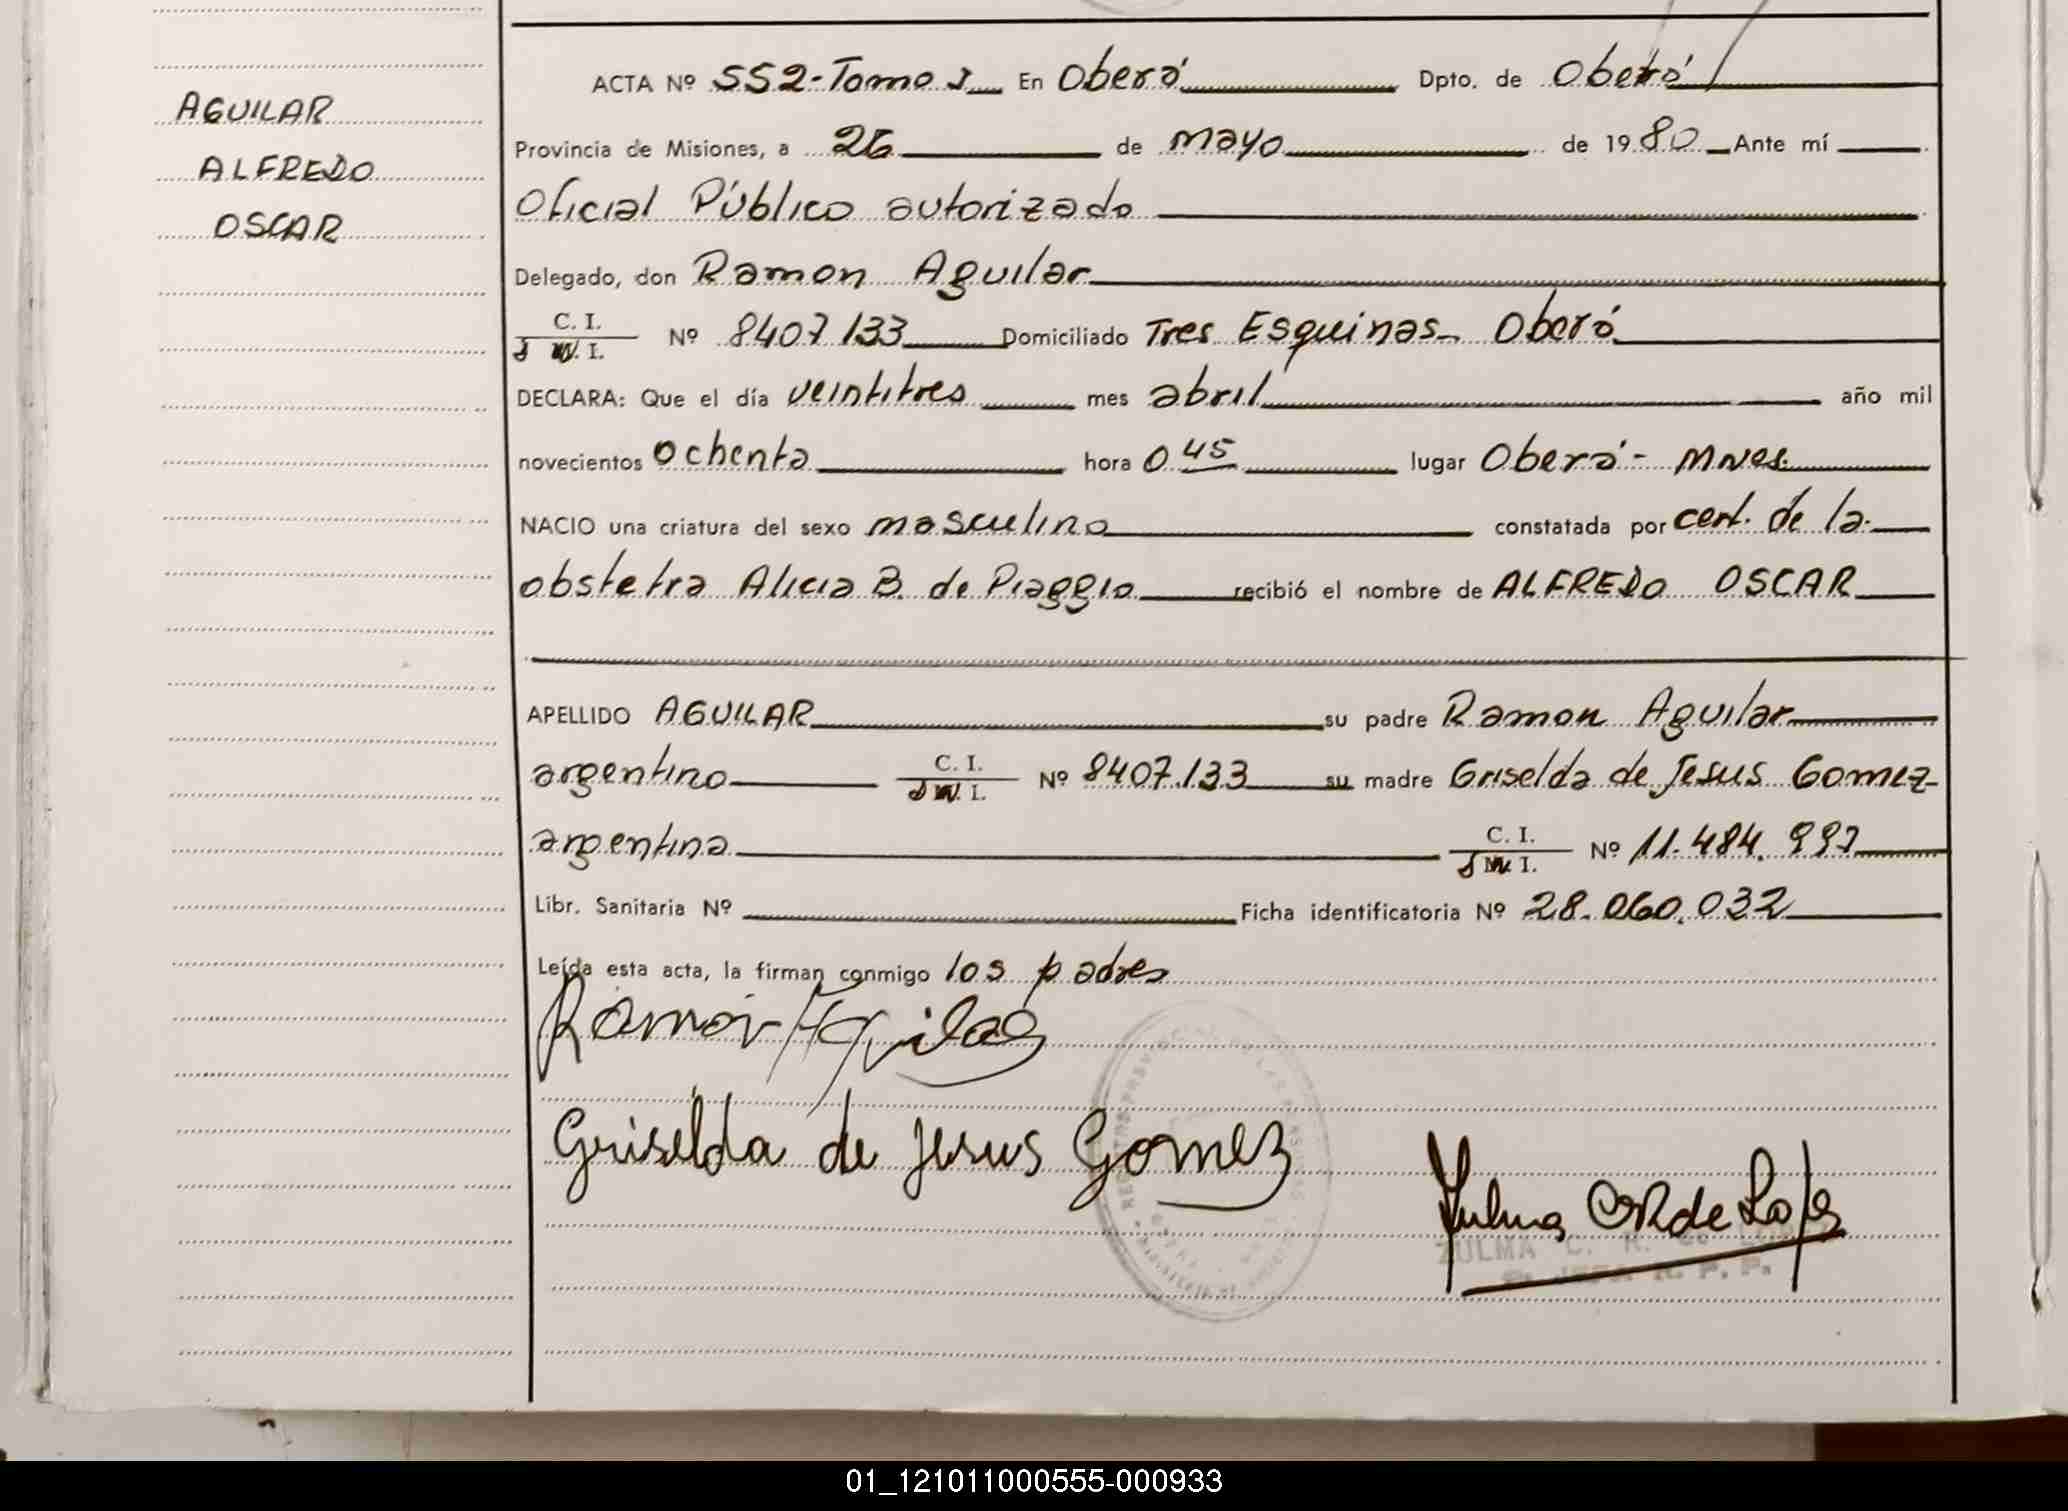 AGUILAR
ALFREDO
OSCAR
ACTA Nº 552-Tomo I En Oberá Dpto. de Oberá
Provincia de Misiones, a 26 de mayo de 1980 Ante mí
Oficial Público autorizado
Delegado, don Ramon Aguilar
C. I. Nº 8407133 Domiciliado Tres Esquinas- Oberá
DECLARA: Que el día veintitres mes abril año mil
novecientos ochenta hora 0 45 lugar Oberá- Mnes.
NACIO una criatura del sexo masculino constatada por cert. de la
obstetra Alicia B. de Piaggio recibió el nombre de ALFREDO OSCAR
APELLIDO AGUILAR su padre Ramon Aguilar
argentino C. I. Nº 8407.133 su madre Griselda de Jesus Gomez-
argentina C. I. Nº 11.484.997
Libr. Sanitaria Nº Ficha identificatoria Nº 28.060.032
Leída esta acta, la firman conmigo los padres
Ramón Aguilar
Griselda de Jesus Gomez
ZULMA C. R. de
R. P. P.
01_121011000555-000933